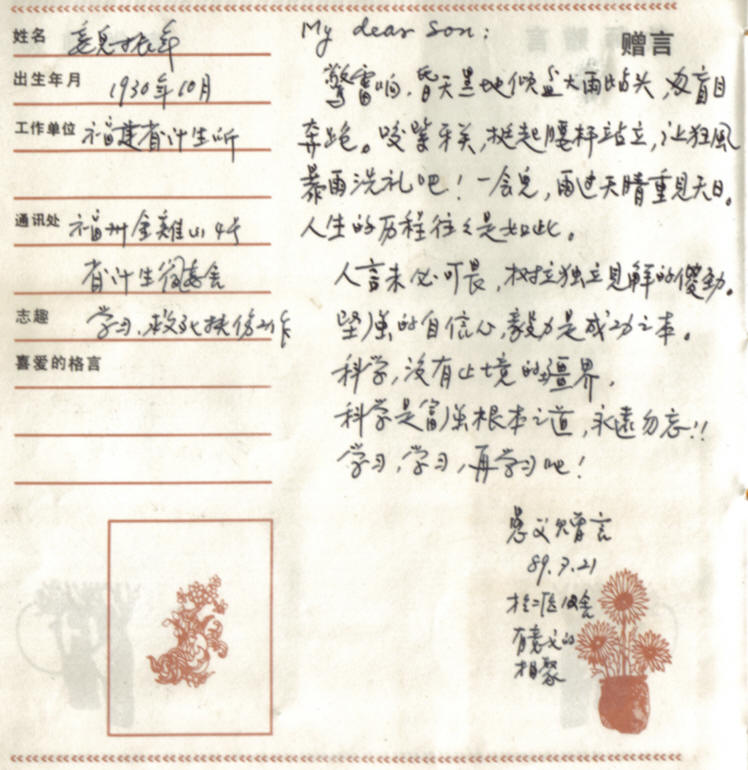 姓名
出生年月 1930年10月
工作单位 福建省计生所
通讯处 福州金鸡山4号
省计生所宿舍
志趣 学习、救死扶伤工作
喜爱的格言
赠言
My dear son:
惊雷响,昏天黑地倾盆大雨临头,勿盲目
奔跑。咬紧牙关,挺起腰杆站立,让狂風
暴雨洗礼吧!一会兒,雨过天晴重見天日。
人生的历程往々是如此。
人言未必可畏,树立独立見解的傻劲。
坚强的自信心,毅力是成功之本。
科学,没有止境的疆界,
科学是富强根本之道,永远勿忘!!
学习,学习,再学习吧!
愚父赠言
89.7.21
有意义的
相聚